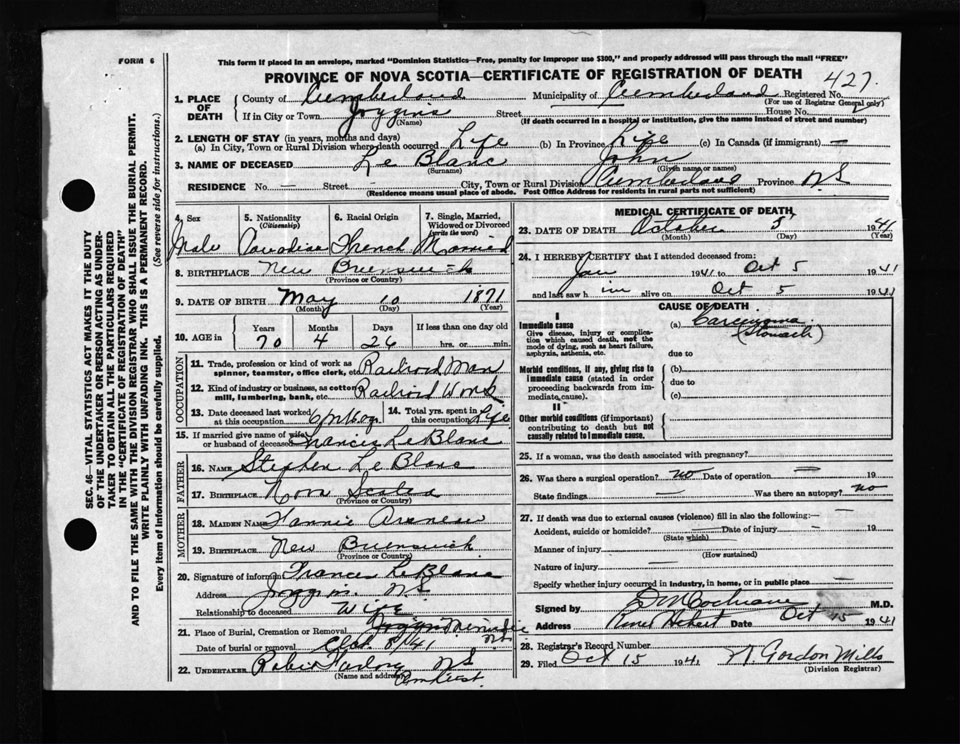 FORM 6
This form if placed in an envelope, marked "Dominion Statistics—Free, penalty for improper use $300," and properly addressed will pass through the mail "FREE"
PROVINCE OF NOVA SCOTIA—CERTIFICATE OF REGISTRATION OF DEATH
427
1. PLACE OF DEATH
County of Cumberland Municipality of Cumberland Registered No.
(For use of Registrar General only)
If in City or Town Joggins Street House No.
(Name) (If death occurred in a hospital or institution, give the name instead of street and number)
2. LENGTH OF STAY (in years, months and days)
(a) In City, Town or Rural Division where death occurred Life (b) In Province Life (c) In Canada (if immigrant) —
3. NAME OF DECEASED Le Blanc John
(Surname) (Given name or names)
RESIDENCE No. — Street City, Town or Rural Division Cumberland Province N.S
(Residence means usual place of abode. Post Office Address for residents in rural parts not sufficient)
SEC. 46—VITAL STATISTICS ACT MAKES IT THE DUTY
OF THE UNDERTAKER OR PERSON ACTING AS UNDER-
TAKER TO OBTAIN ALL THE PARTICULARS REQUIRED
IN THE "CERTIFICATE OF REGISTRATION OF DEATH"
AND TO FILE THE SAME WITH THE DIVISION REGISTRAR WHO SHALL ISSUE THE BURIAL PERMIT.
WRITE PLAINLY WITH UNFADING INK. THIS IS A PERMANENT RECORD.
Every item of information should be carefully supplied. (See reverse side for instructions.)
4. Sex 5. Nationality (Citizenship) 6. Racial Origin 7. Single, Married, Widowed or Divorced (write the word)
Male Canadian French Married
8. BIRTHPLACE New Brunswick
(Province or Country)
9. DATE OF BIRTH May 10 1871
(Month) (Day) (Year)
10. AGE in Years Months Days If less than one day old
70 4 26 hrs. or min.
OCCUPATION
11. Trade, profession or kind of work as spinner, teamster, office clerk, etc. Railroad Man
12. Kind of industry or business, as cotton mill, lumbering, bank, etc. Railroad Work
13. Date deceased last worked at this occupation 14. Total yrs. spent in this occupation Life
15. If married give name of wife or husband of deceased Francis LeBlanc
FATHER
16. NAME Stephen Le Blanc
17. BIRTHPLACE Nova Scotia
(Province or Country)
MOTHER
18. MAIDEN NAME Fannie
19. BIRTHPLACE New Brunswick
(Province or Country)
20. Signature of informant Frances LeBlanc
Address Joggins N.S
Relationship to deceased Wife
21. Place of Burial, Cremation or Removal Joggins
Date of burial or removal 8/41
22. UNDERTAKER N.S
(Name and address) Amherst
MEDICAL CERTIFICATE OF DEATH
23. DATE OF DEATH October 5 1941
(Month) (Day) (Year)
24. I HEREBY CERTIFY that I attended deceased from:
Jan 1941 to Oct 5 1941
and last saw h im alive on Oct 5 1941
CAUSE OF DEATH
I
Immediate cause (a) Carcinoma
(Stomach)
Give disease, injury or complication which caused death, not the mode of dying, such as heart failure, asphyxia, asthenia, etc.
due to
Morbid conditions, if any, giving rise to immediate cause (stated in order proceeding backwards from immediate cause).
(b)
due to
(c)
II
Other morbid conditions (if important) contributing to death but not causally related to immediate cause.
25. If a woman, was the death associated with pregnancy?
26. Was there a surgical operation? no Date of operation — 19
State findings — Was there an autopsy? no
27. If death was due to external causes (violence) fill in also the following:—
Accident, suicide or homicide? Date of injury 19
(State which)
Manner of injury
(How sustained)
Nature of injury —
Specify whether injury occurred in industry, in home, or in public place —
Signed by Cochrane M.D.
Address River Hebert Date Oct 15 1941
28. Registrar's Record Number
29. Filed Oct 15 1941 Gordon Mills
(Division Registrar)